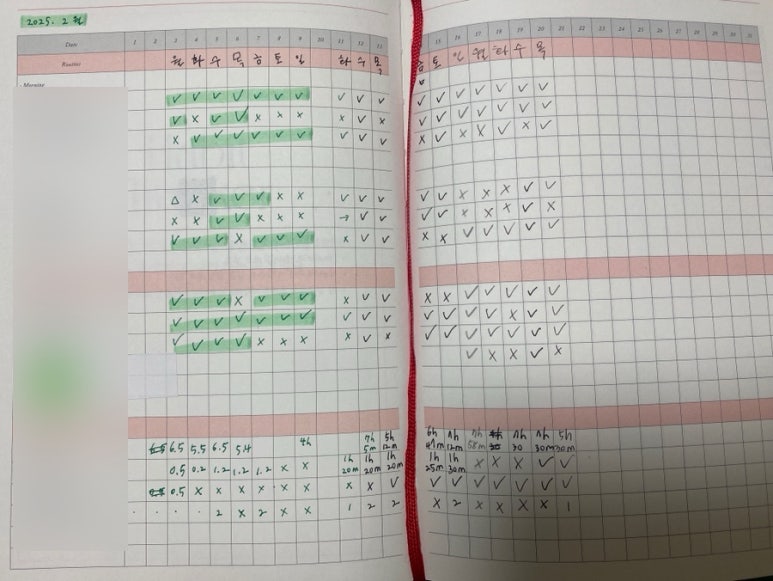 2025. 2월
Date 1 2 3 4 5 6 7 8 9 10 11 12 13 15 16 17 18 19 20 21 22 23 24 25 26 27 28 29 30 31
Routine 월 화 수 목 금 토 일 화 수 목 금 토 일 월 화 수 목
Morning
✓ ✓ ✓ ✓ ✓ ✓ ✓ ✓ ✓ ✓ ✓ ✓ ✓ ✓ ✓ ✓ ✓
✓ x ✓ ✓ x x x x ✓ x ✓ ✓ ✓ ✓ ✓ ✓ ✓
x ✓ ✓ ✓ ✓ ✓ ✓ ✓ ✓ ✓ x ✓ x x ✓ x ✓
△ x ✓ ✓ ✓ x x ✓ ✓ ✓ ✓ ✓ x x x ✓ ✓
x x ✓ ✓ x x x → ✓ ✓ ✓ ✓ x x x ✓ x
✓ ✓ ✓ x ✓ ✓ ✓ x ✓ ✓ x x ✓ ✓ ✓ ✓ ✓
✓ ✓ ✓ x ✓ ✓ ✓ x ✓ ✓ x x ✓ ✓ ✓ ✓ ✓
✓ ✓ ✓ ✓ ✓ ✓ ✓ ✓ ✓ ✓ ✓ ✓ ✓ ✓ x ✓ ✓
✓ ✓ ✓ ✓ x x x x ✓ x ✓ ✓ ✓ ✓ ✓ ✓ ✓
✓ x x ✓ x
6.5 5.5 6.5 5H 4h 7h 5m 5h 12m 6h 12m 58m 30 30m 5h 30m
0.5 0.2 1.2 1.2 1.2 x x 1h 20m 1h 20m 1h 20m 1h 25m 1h 30m x x x ✓ ✓
0.5 x x x x x x x x ✓ ✓ ✓ ✓ ✓ ✓ ✓ ✓
2 x 2 x x 1 2 2 x 2 x x x x 1